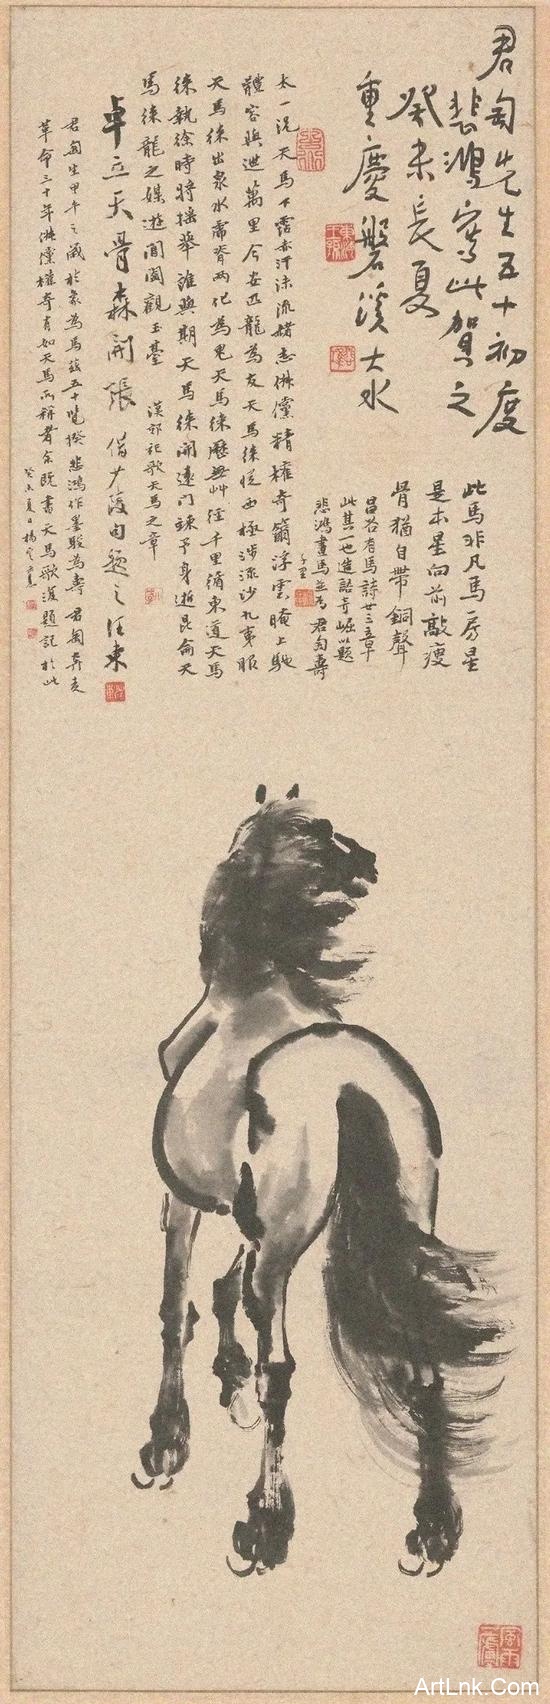 君匋先生五十初度
悲鴻寫此賀之
癸未長夏
重慶磐溪大水
此馬非凡馬房星
是本星向前敲瘦
骨猶自帶銅聲
昌谷有馬詩廿三章
此其一也造語奇崛以題
悲鴻畫馬並為君匋壽
太一況天馬下霑赤汗沫流赭志俶儻精權奇籋浮雲晻上馳
體容與迣萬里今安匹龍為友天馬徠從西極涉流沙九夷服
天馬徠出泉水虎脊兩化為鬼天馬徠歷無艸徑千里循東道天馬
徠執徐時將搖舉誰與期天馬徠開遠門竦予身逝昆侖天
馬徠龍之媒游閶闔觀玉臺 漢郊祀歌天馬之章
卓立天骨森開張 借少陵句題之汪東
君匋生甲午之歲於象為馬茲五十覽揆悲鴻作墨駿為壽君匋奔走
革命三十年俶儻權奇有如天馬所稱者余既書天馬歌復題記於此
癸未夏日楊
ArtLnk.Com